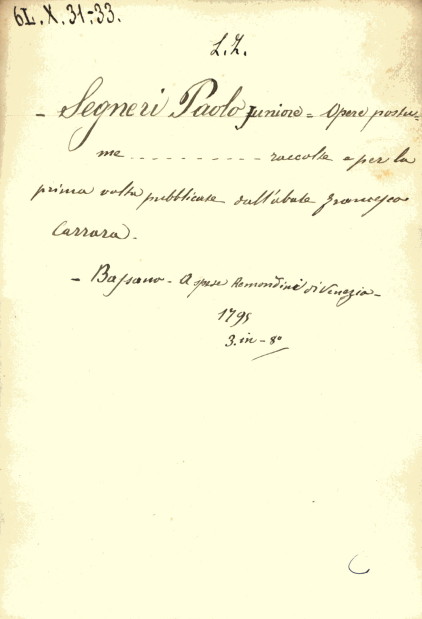 6L.X.31-33.
L.Z.
- Segneri Paolo Juniore = Opere postu-
me ........... raccolte e per la
prima volta pubblicate dall'abate Francesco
Carrara.
- Bassano - A spese Remondini di Venezia -
1795
3. in - 8°